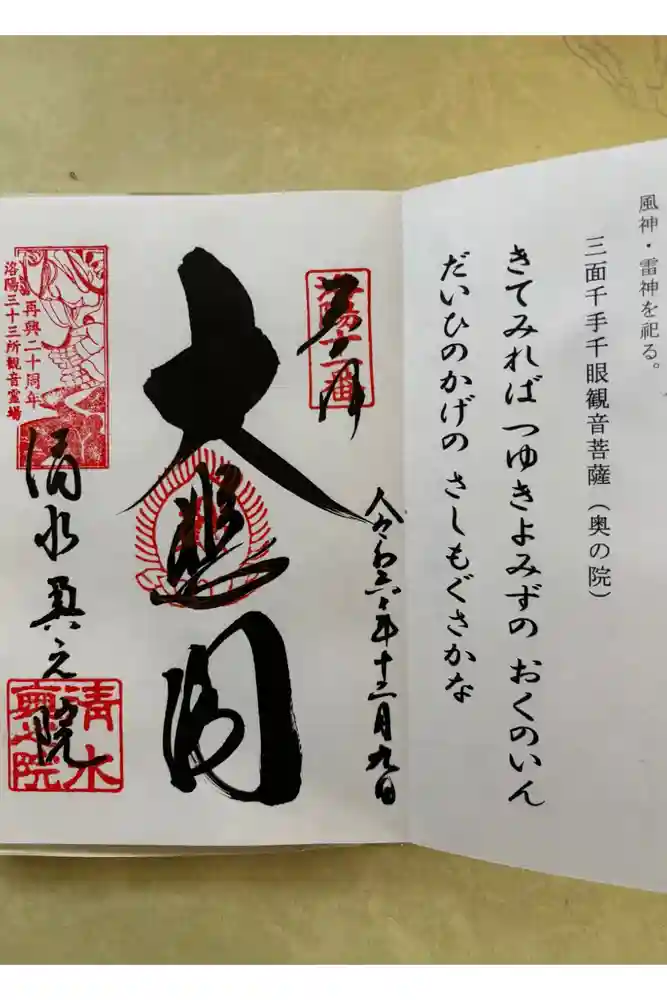 風神・雷神を祀る。
三面千手千眼観音菩薩（奥の院）
きてみれば つゆきよみずの おくのいん
だいひのかげの さしもぐさかな
奉拝
洛陽十一番
令和六年十二月九日
大悲閣
再興二十周年
洛陽三十三所観音霊場
清水奥之院
清水奥之院